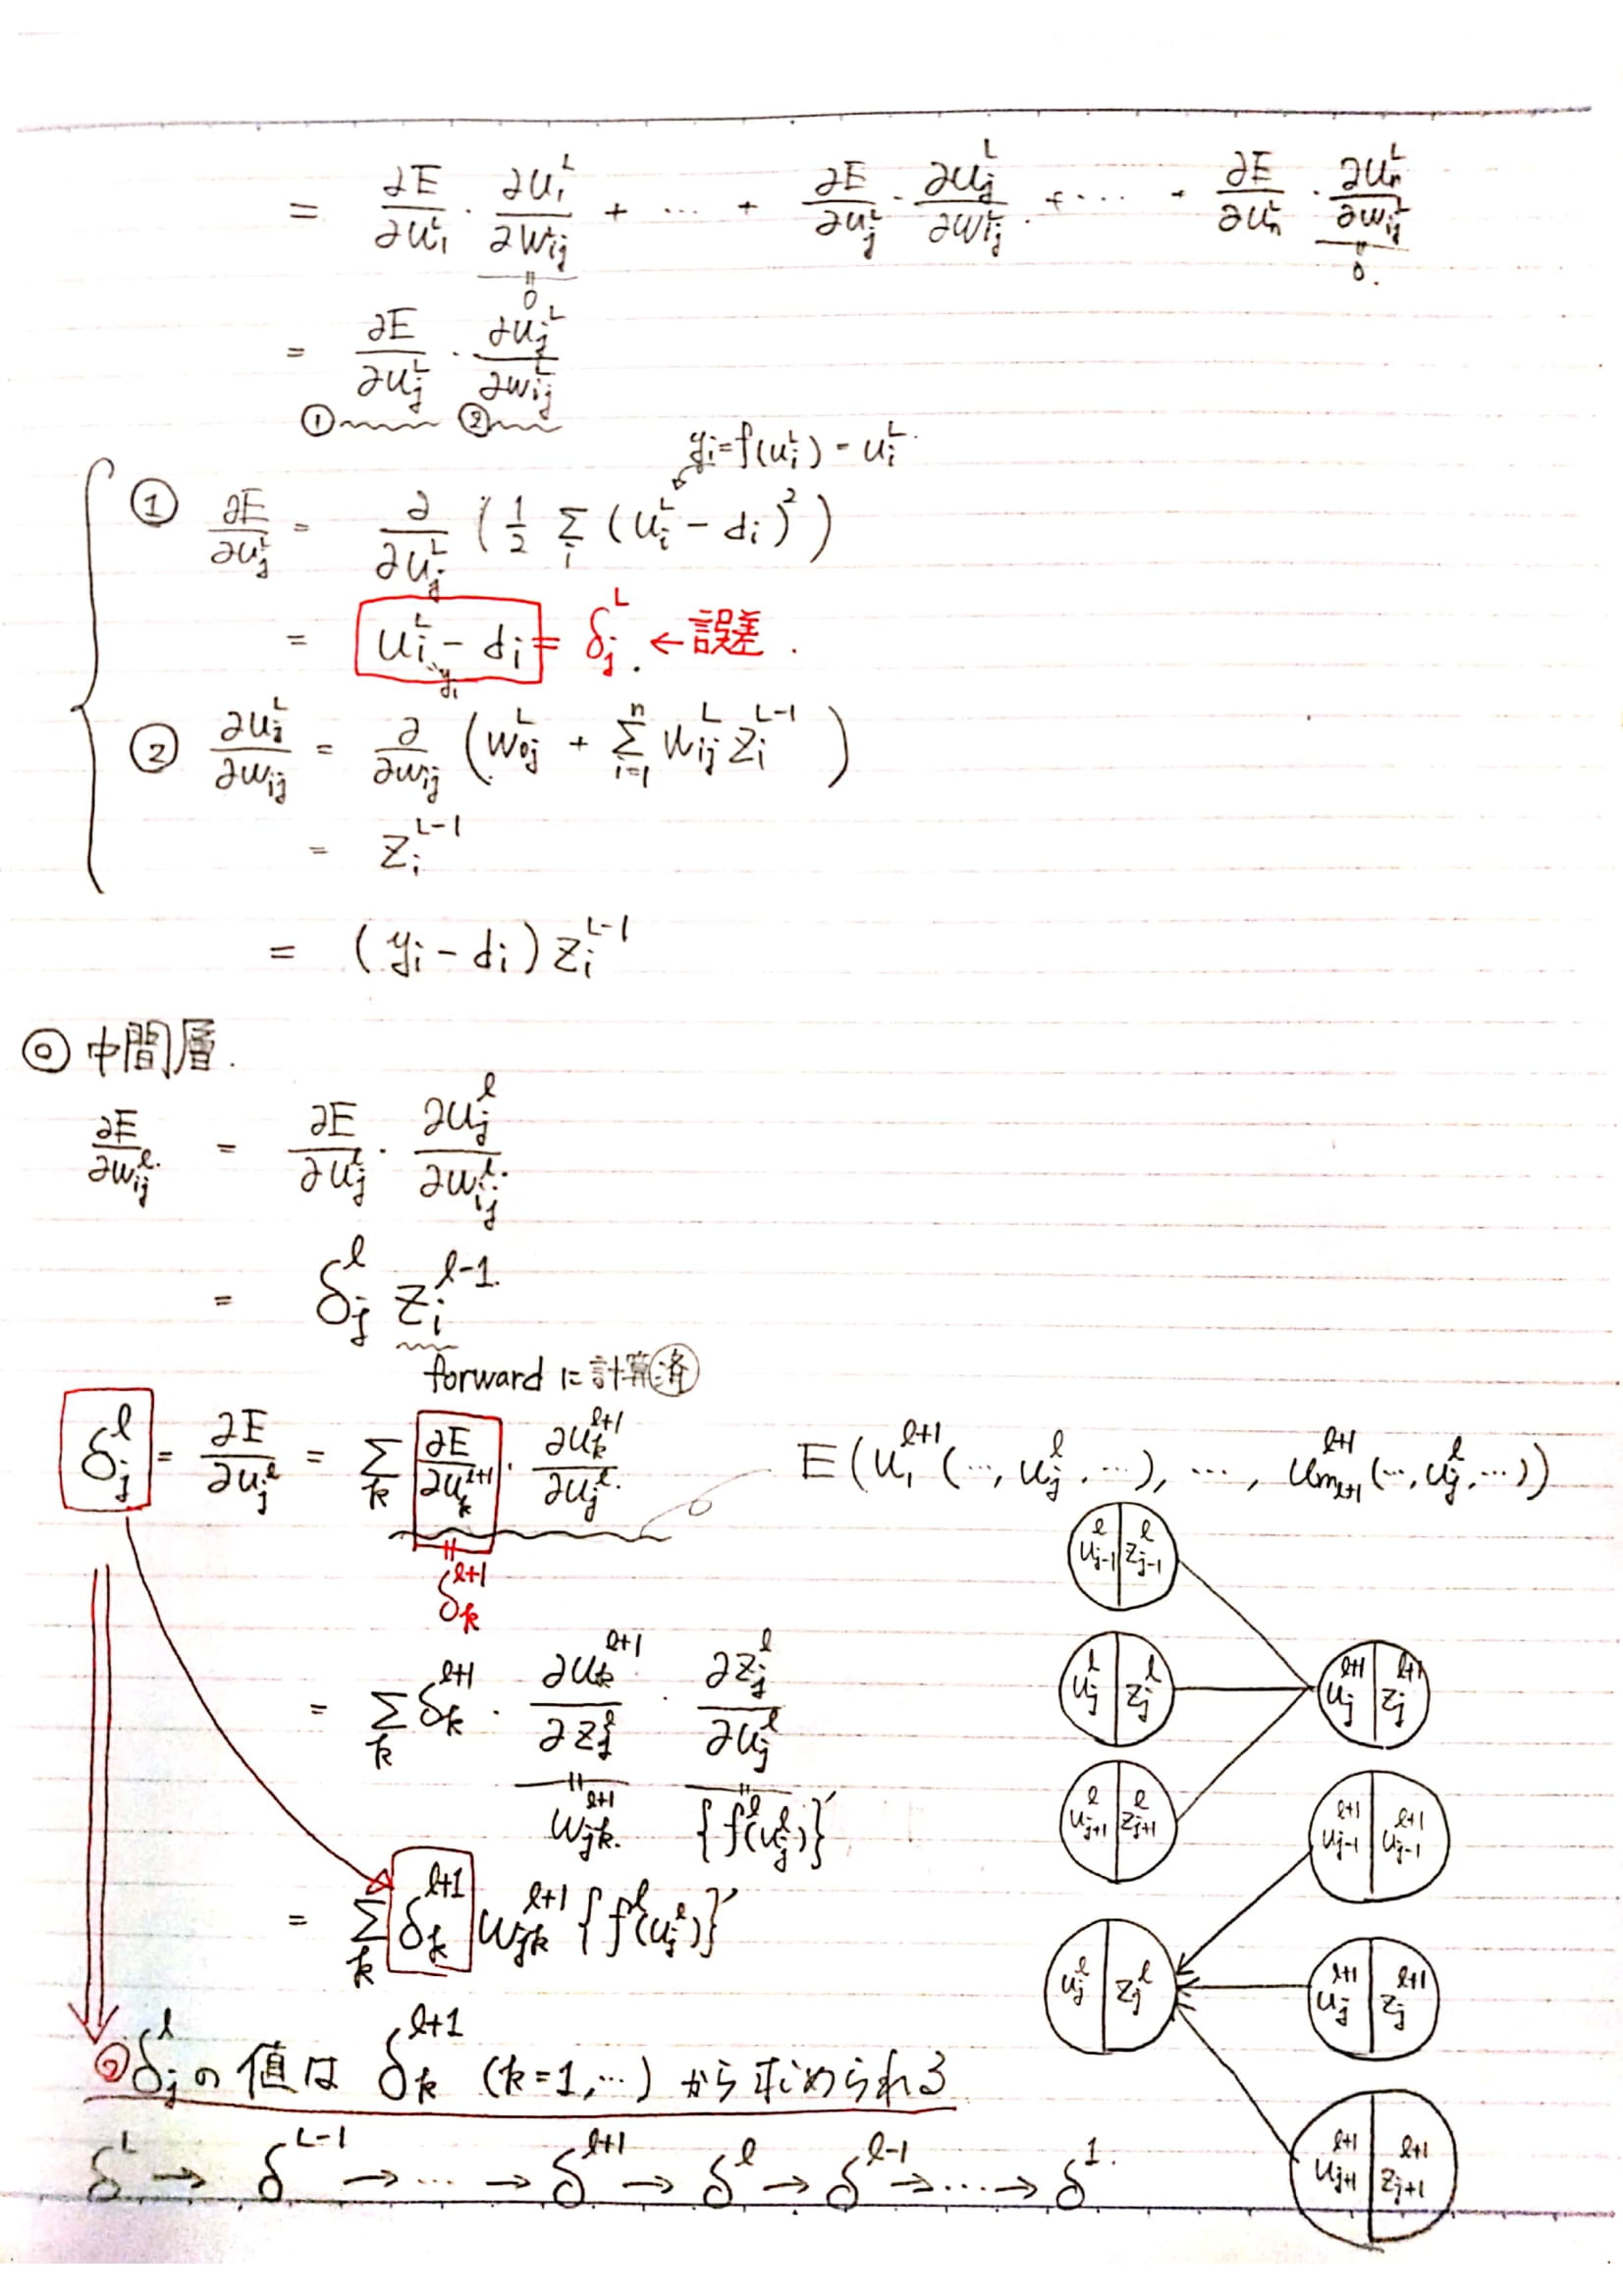 = ∂E/∂u₁ᴸ · ∂u₁ᴸ/∂wᵢⱼᴸ + ⋯ + ∂E/∂uⱼᴸ · ∂uⱼᴸ/∂wᵢⱼᴸ + ⋯ + ∂E/∂uₙᴸ · ∂uₙᴸ/∂wᵢⱼᴸ
0 0.
= ∂E/∂uⱼᴸ · ∂uⱼᴸ/∂wᵢⱼᴸ
① ②
yᵢ = f(uᵢᴸ) = uᵢᴸ
① ∂E/∂uⱼᴸ = ∂/∂uⱼᴸ (1/2 Σᵢ (uᵢᴸ - dᵢ)²)
= uᵢᴸ - dᵢ = δⱼᴸ. ← 誤差.
yᵢ
② ∂uⱼᴸ/∂wᵢⱼ = ∂/∂wᵢⱼ (w₀ⱼᴸ + Σᵢ₌₁ⁿ wᵢⱼᴸ zᵢᴸ⁻¹)
= zᵢᴸ⁻¹
= (yᵢ - dᵢ) zᵢᴸ⁻¹
◎ 中間層.
∂E/∂wᵢⱼˡ = ∂E/∂uⱼˡ · ∂uⱼˡ/∂wᵢⱼˡ
= δⱼˡ zᵢˡ⁻¹
forward に計算済
δⱼˡ = ∂E/∂uⱼˡ = Σₖ ∂E/∂uₖˡ⁺¹ · ∂uₖˡ⁺¹/∂uⱼˡ E(u₁ˡ⁺¹(⋯, uⱼˡ, ⋯), ⋯, u_{m_{l+1}}ˡ⁺¹(⋯, uⱼˡ, ⋯))
δₖˡ⁺¹
= Σₖ δₖˡ⁺¹ · ∂uₖˡ⁺¹/∂zⱼˡ · ∂zⱼˡ/∂uⱼˡ
wⱼₖˡ⁺¹ {fˡ(uⱼˡ)}′
= Σₖ δₖˡ⁺¹ wⱼₖˡ⁺¹ {fˡ(uⱼˡ)}′
◎ δⱼˡ の値は δₖˡ⁺¹ (k=1,⋯) から求められる
δᴸ → δᴸ⁻¹ → ⋯ → δˡ⁺¹ → δˡ → δˡ⁻¹ → ⋯ → δ¹.
uⱼ₋₁ˡ | zⱼ₋₁ˡ
uⱼˡ | zⱼˡ
uⱼˡ⁺¹ | zⱼˡ⁺¹
uⱼ₊₁ˡ | zⱼ₊₁ˡ
uⱼ₋₁ˡ⁺¹ | uⱼ₋₁ˡ⁺¹
uⱼˡ | zⱼˡ
uⱼˡ⁺¹ | zⱼˡ⁺¹
uⱼ₊₁ˡ⁺¹ | zⱼ₊₁ˡ⁺¹